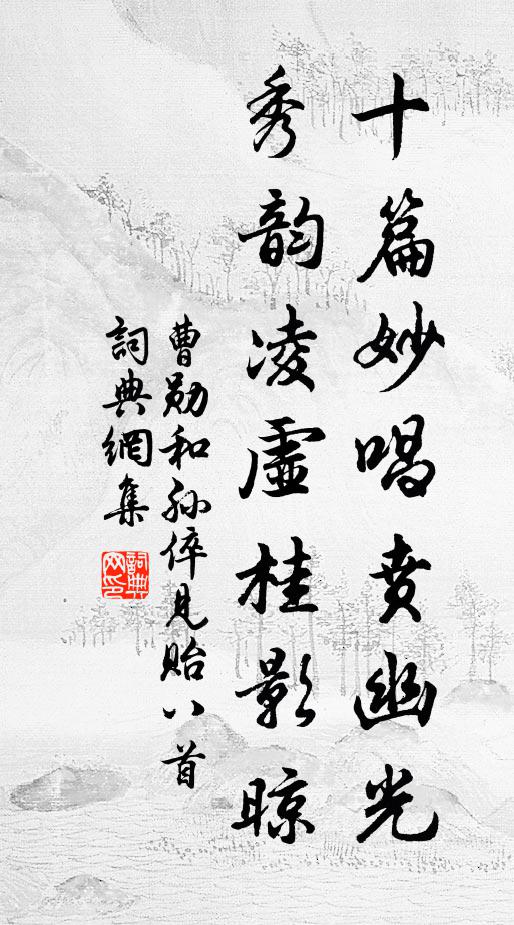 十篇妙唱賁幽光
秀韵凌虛桂影晾
曹勛和孙倅見貽八首
詞典網集
詞典網印